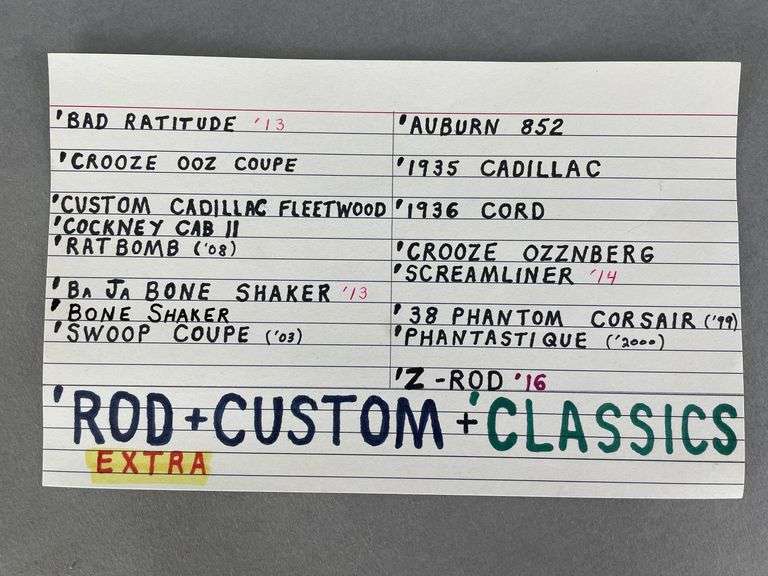 'BAD RATITUDE '13
'CROOZE OOZ COUPE
'CUSTOM CADILLAC FLEETWOOD
'COCKNEY CAB II
'RATBOMB ('08)
'BA JA BONE SHAKER '13
'BONE SHAKER
'SWOOP COUPE ('03)
'AUBURN 852
'1935 CADILLAC
'1936 CORD
'CROOZE OZZNBERG
'SCREAMLINER '14
'38 PHANTOM CORSAIR ('99)
'PHANTASTIQUE ('2000)
'Z-ROD '16
'ROD+CUSTOM+'CLASSICS
EXTRA